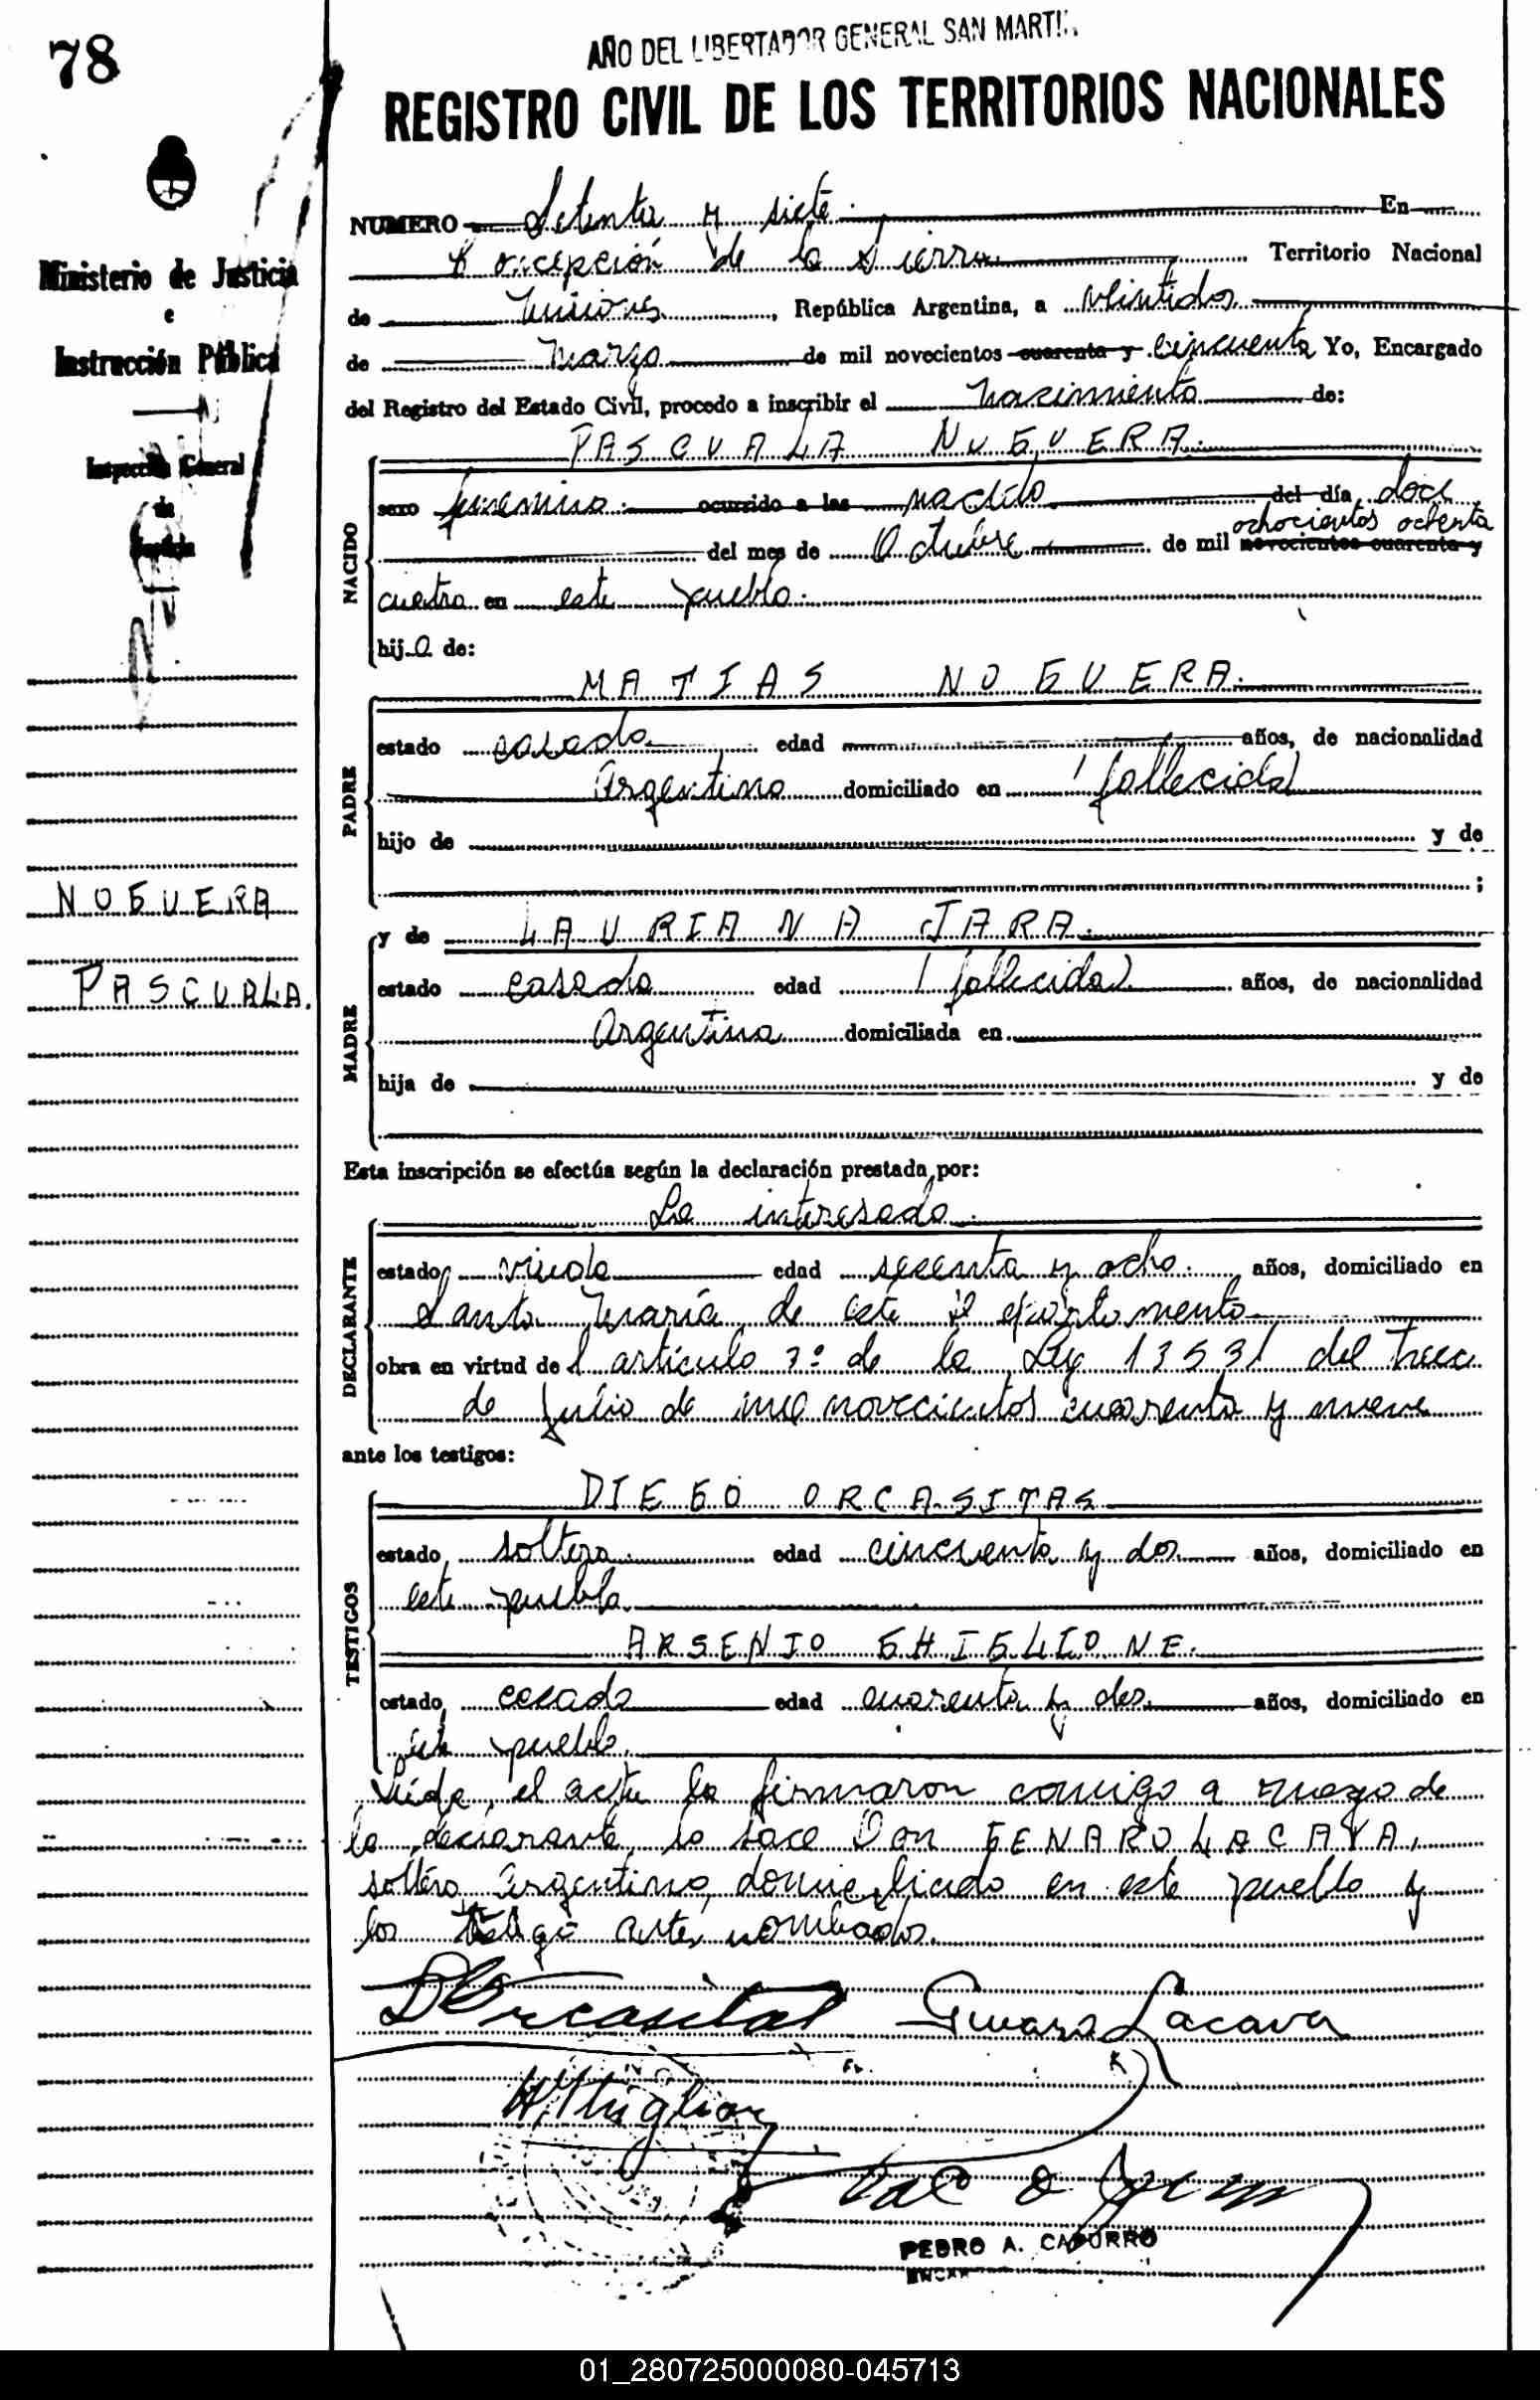 78
AÑO DEL LIBERTADOR GENERAL SAN MARTIN
REGISTRO CIVIL DE LOS TERRITORIOS NACIONALES
Ministerio de Justicia
e
Instrucción Pública
Inspección General
de
Justicia
NOGUERA
PASCUALA.
NUMERO Setenta y siete. En
Concepción de la Sierra Territorio Nacional
de Misiones, República Argentina, a veintidos
de Marzo de mil novecientos cuarenta y cincuenta Yo, Encargado
del Registro del Estado Civil, procedo a inscribir el nacimiento de:
PASCUALA NOGUERA.
NACIDO
sexo femenino. ocurrido a las nacido del día doce
ochocientos ochenta
del mes de Octubre de mil novecientos cuarenta y
cuatro en este pueblo.
hija de:
MATIAS NOGUERA.
PADRE
estado casado edad años, de nacionalidad
Argentino domiciliado en (fallecido)
hijo de y de
;
y de LAURIANA JARA.
MADRE
estado casada edad (fallecida) años, de nacionalidad
Argentina domiciliada en
hija de y de
Esta inscripción se efectúa según la declaración prestada por:
La interesada.
DECLARANTE
estado viuda edad sesenta y ocho. años, domiciliado en
Santa María de este departamento
obra en virtud del artículo 2º de la Ley 13531 del trece
de julio de mil novecientos cuarenta y nueve
ante los testigos:
DIEGO ORCASITAS
TESTIGOS
estado soltero edad cincuenta y dos años, domiciliado en
este pueblo.
ARSENIO GHIGLIONE.
estado casado edad cuarenta y dos años, domiciliado en
este pueblo.
Leída el acta la firmaron conmigo a ruego de
la declarante lo hace Don GENARO LACAVA,
soltero, argentino, domiciliado en este pueblo y
los testigo antes nombados.
D Orcasitas Genaro Lacava
PEDRO A. CAPURRO
01_280725000080-045713